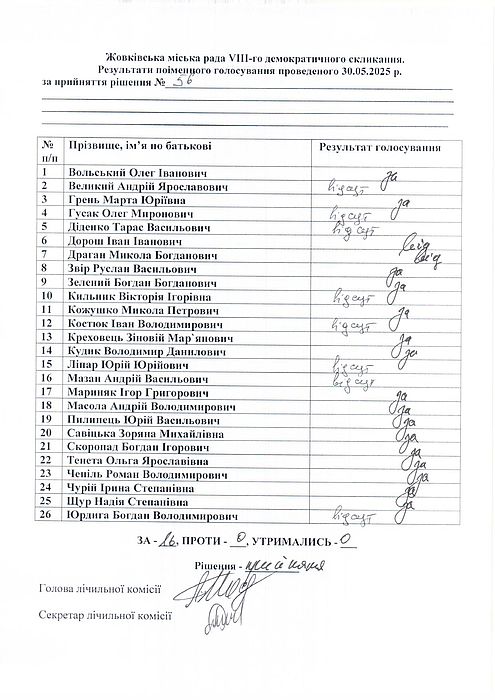 Жовківська міська рада VIII-го демократичного скликання.
Результати поіменного голосування проведеного 30.05.2025 р.
за прийняття рішення № 56
№ п/п Прізвище, ім’я по батькові Результат голосування
1 Вольський Олег Іванович за
2 Великий Андрій Ярославович відсут
3 Грень Марта Юріївна за
4 Гусак Олег Миронович відсут
5 Діденко Тарас Васильович відсут
6 Дорош Іван Іванович
7 Драган Микола Богданович
8 Звір Руслан Васильович за
9 Зелений Богдан Богданович за
10 Кильник Вікторія Ігорівна відсут
11 Кожушко Микола Петрович за
12 Костюк Іван Володимирович відсут
13 Креховець Зіновій Мар`янович за
14 Кудик Володимир Данилович за
15 Лінар Юрій Юрійович відсут
16 Мазан Андрій Васильович відсут
17 Мариняк Ігор Григорович за
18 Масола Андрій Володимирович за
19 Пилипець Юрій Васильович за
20 Савіцька Зоряна Михайлівна за
21 Скоропад Богдан Ігорович за
22 Тенета Ольга Ярославівна за
23 Чепіль Роман Володимирович за
24 Чурій Ірина Степанівна за
25 Щур Надія Степанівна за
26 Юрдига Богдан Володимирович відсут
ЗА - 16, ПРОТИ - 0, УТРИМАЛИСЬ - 0
Рішення - прийняте
Голова лічильної комісії
Секретар лічильної комісії